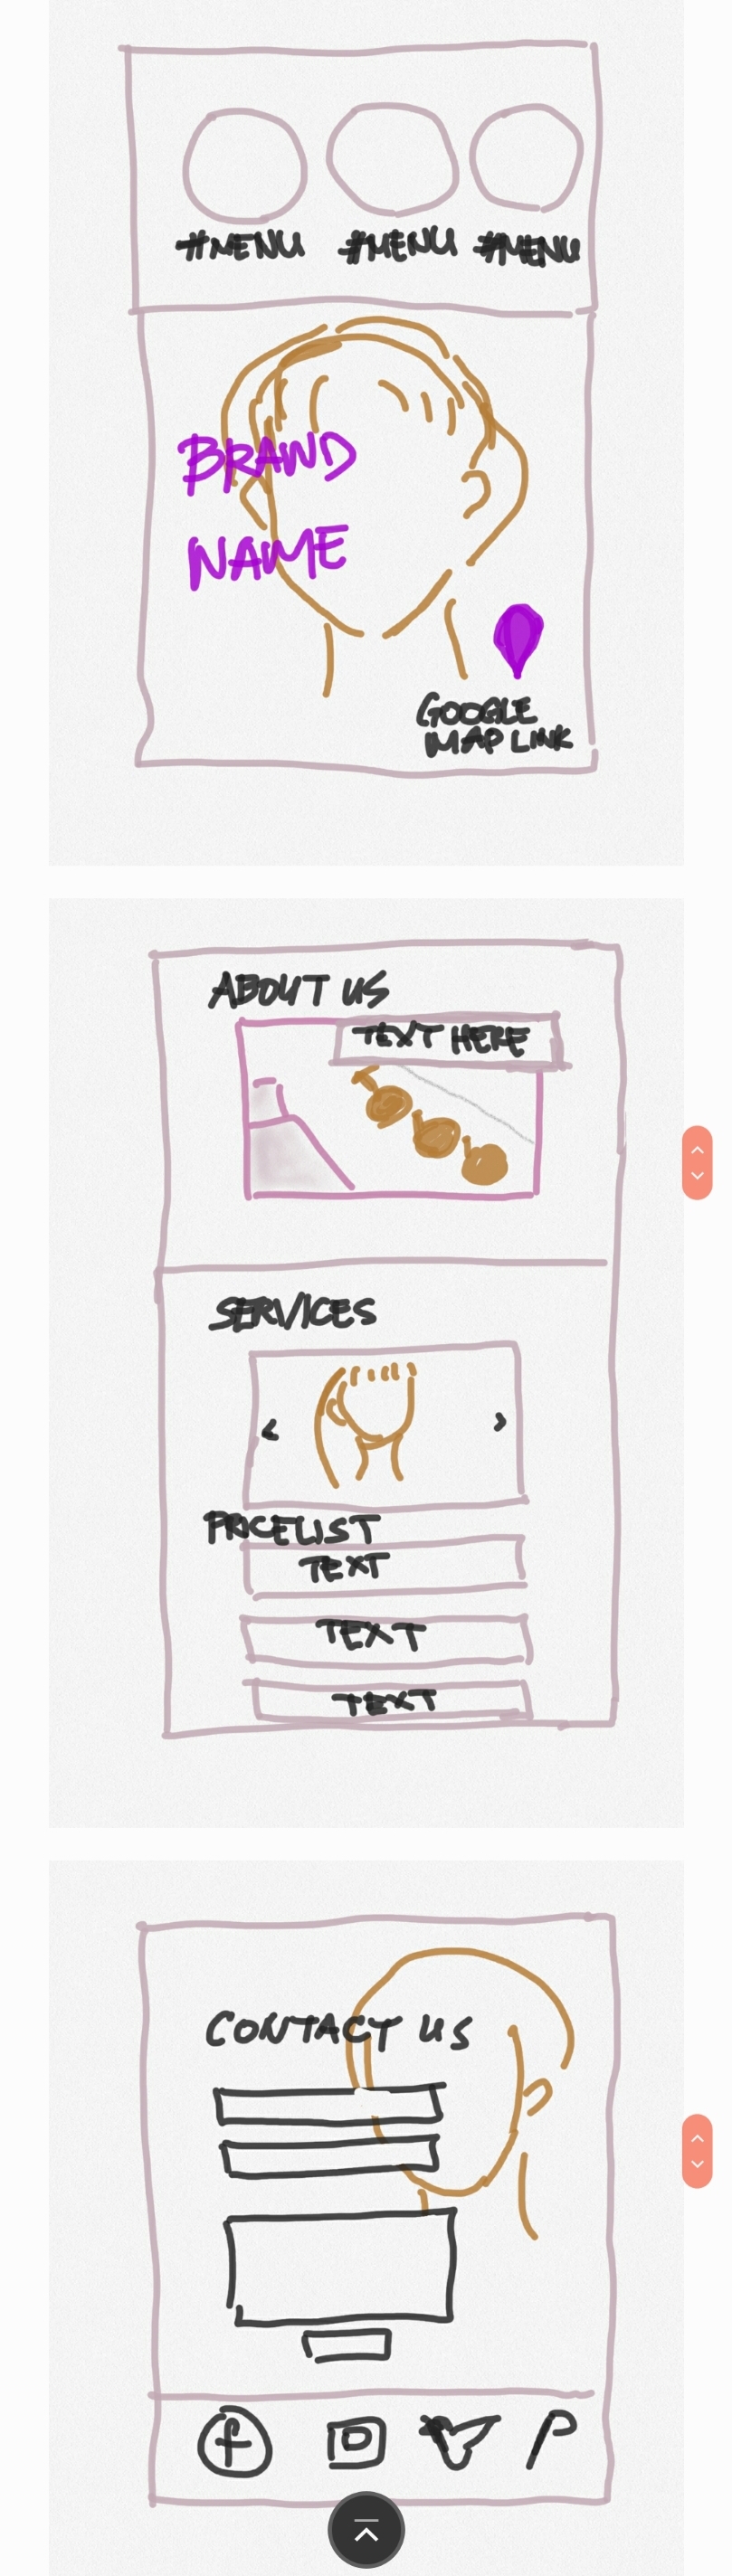 #MENU #MENU #MENU
BRAND
NAME
GOOGLE
MAP LINK
ABOUT US
TEXT HERE
SERVICES
< >
PRICELIST
TEXT
TEXT
TEXT
CONTACT US